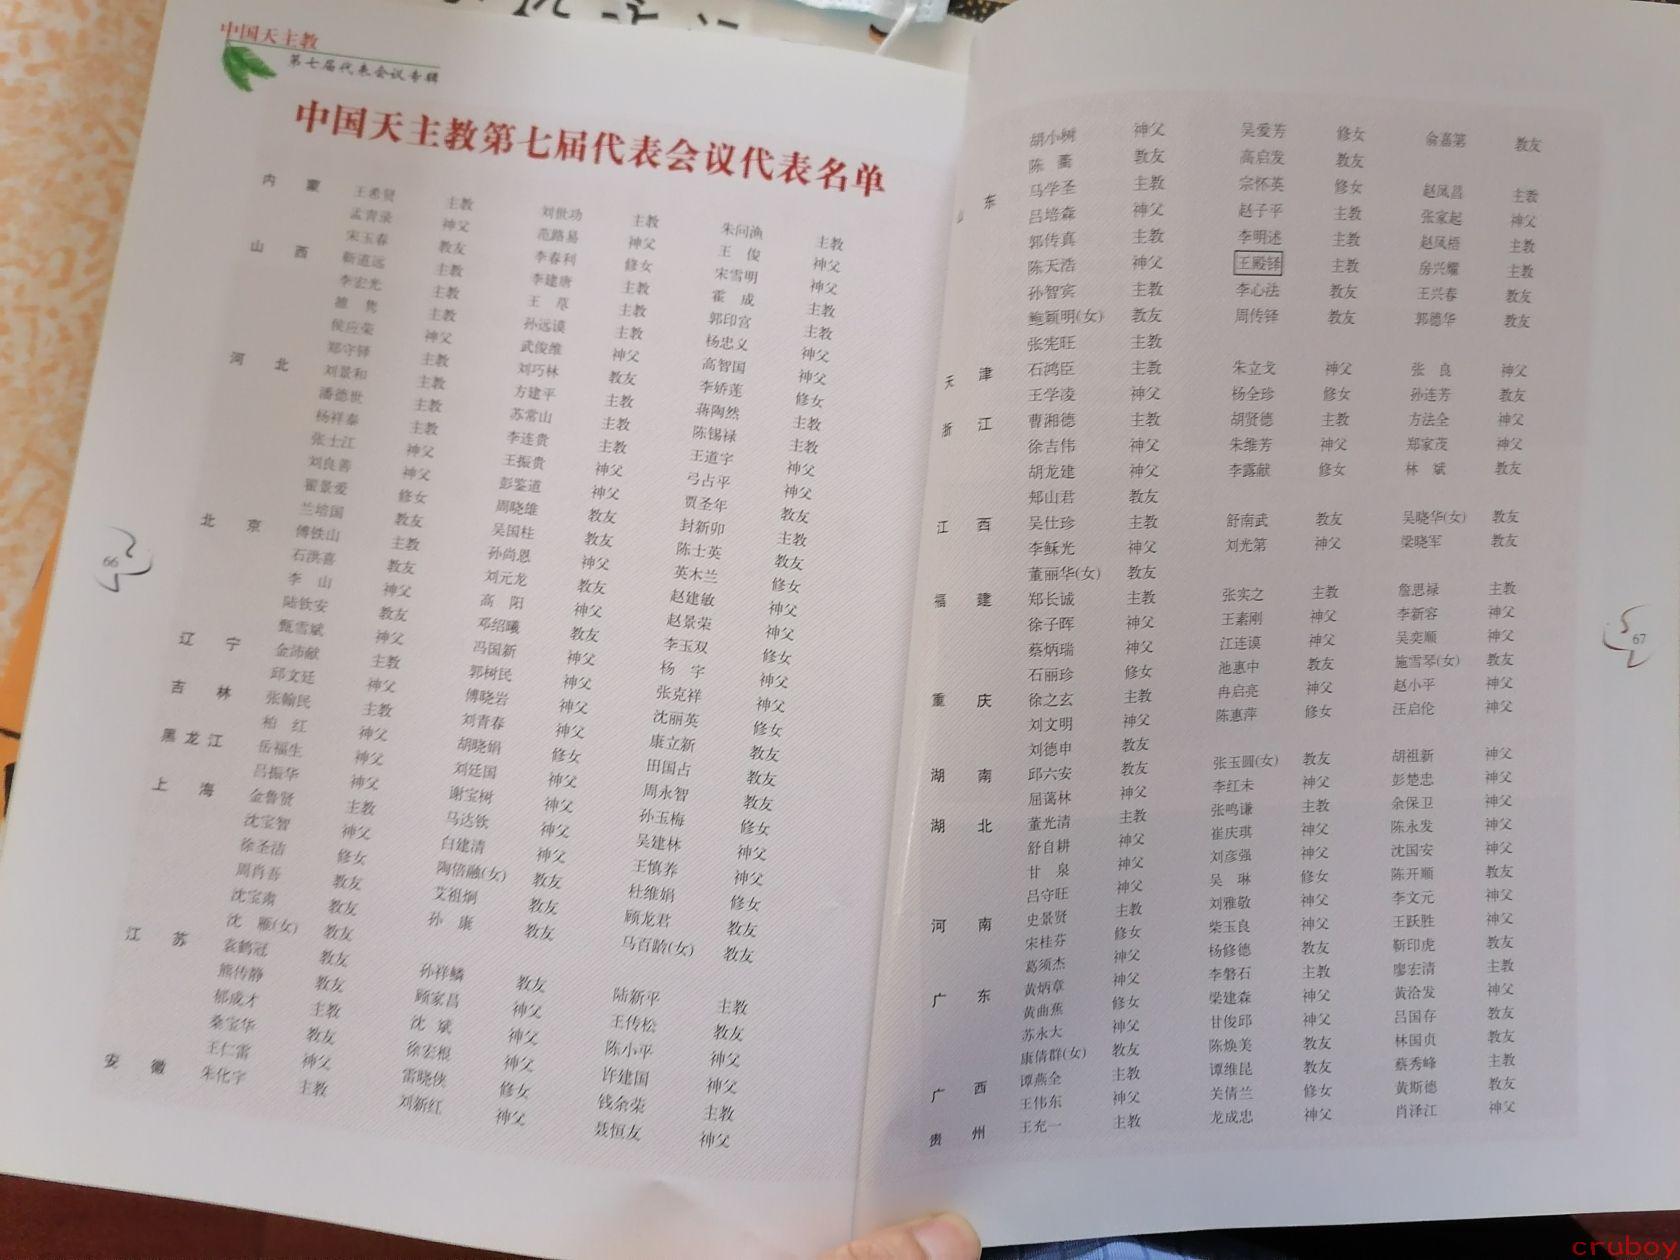 中国天主教
第七届代表会议专辑
中国天主教第七届代表会议代表名单
内蒙 王希贤 主教 刘世功 主教 朱问渔 主教
孟青录 神父 范路易 神父 王俊 神父
宋玉春 教友 李春利 修女 宋雪明 神父
山西 靳道远 主教 李建唐 主教 霍成 主教
李宏光 主教 王 主教 郭印宫 主教
雒隽 主教 孙远谟 主教 杨忠义 神父
侯应荣 神父 武俊维 神父 高智国 神父
郑守铎 主教 刘巧林 教友 李娇莲 修女
河北 刘景和 主教 方建平 主教 蒋陶然 主教
潘德世 主教 苏常山 主教 陈锡禄 主教
杨祥泰 主教 李连贵 主教 王道宇 神父
张士江 神父 王振贵 神父 弓占平 神父
刘良善 神父 彭鉴道 神父 贾圣年 教友
翟景爱 修女 周晓维 教友 封新卯 主教
兰培国 教友 吴国柱 教友 陈士英 教友
北京 傅铁山 主教 孙尚恩 神父 英木兰 修女
石洪喜 教友 刘元龙 教友 赵建敏 神父
李山 神父 高阳 神父 赵景荣 神父
陆钦安 教友 邓绍曦 教友 李玉双 修女
甄雪斌 神父 冯国新 神父 杨宇 神父
辽宁 金沛献 主教 郭树民 神父 张克祥 神父
邱文廷 神父 傅晓岩 神父 沈丽英 修女
吉林 张翰民 主教 刘青春 神父 康立新 教友
柏红 神父 胡晓娟 修女 田国占 教友
黑龙江 岳福生 神父 刘廷国 神父 周永智 教友
吕振华 神父 谢宝树 神父 孙玉梅 修女
上海 金鲁贤 主教 马达钦 神父 吴建林 神父
沈宝智 神父 白建清 神父 王慎养 神父
徐圣洁 修女 陶倍融(女) 教友 杜维娟 修女
周肖吾 教友 艾祖炯 教友 顾龙君 教友
沈宝肃 教友 孙康 教友 马百龄(女) 教友
沈雁(女) 教友
江苏 袁鹤冠 教友 孙祥鳞 教友 陆新平 主教
熊传静 教友 顾家昌 神父 王传松 教友
郁成才 主教 沈斌 神父 陈小平 神父
桑宝华 教友 徐宏根 神父 许建国 神父
王仁雷 神父 雷晓侠 修女 钱余荣 主教
安徽 朱化宇 主教 刘新红 神父 聂恒友 神父
66
胡小树 神父 吴爱芳 修女 翁嘉第 教友
陈 教友 高启发 教友
东 马学圣 主教 宗怀英 修女 赵凤昌 主教
吕培森 神父 赵子平 主教 张家起 神父
郭传真 主教 李明述 主教 赵凤梧 主教
陈天浩 神父 王殿铎 主教 房兴耀 主教
孙智宾 主教 李心法 教友 王兴春 教友
鲍颖明(女) 教友 周传铎 教友 郭德华 教友
张宪旺 主教
天津 石鸿臣 主教 朱立戈 神父 张良 神父
王学凌 神父 杨全珍 修女 孙连芳 教友
浙江 曹湘德 主教 胡贤德 主教 方法全 神父
徐吉伟 神父 朱维芳 神父 郑家茂 神父
胡龙建 神父 李露献 修女 林斌 教友
郏山君 教友
江西 吴仕珍 主教 舒南武 教友 吴晓华(女) 教友
李稣光 神父 刘光第 神父 梁晓军 教友
董丽华(女) 教友
福建 郑长诚 主教 张实之 主教 詹思禄 主教
徐子晖 神父 王素刚 神父 李新容 神父
蔡炳瑞 神父 江连谟 神父 吴奕顺 神父
石丽珍 修女 池惠中 教友 施雪琴(女) 教友
重庆 徐之玄 主教 冉启亮 神父 赵小平 神父
刘文明 神父 陈惠萍 修女 汪启伦 神父
刘德申 教友
湖南 邱六安 教友 张玉圆(女) 教友 胡祖新 神父
屈蔼林 神父 李红未 神父 彭楚忠 神父
湖北 董光清 主教 张鸣谦 主教 余保卫 神父
舒自耕 神父 崔庆琪 神父 陈永发 神父
甘泉 神父 刘彦强 神父 沈国安 神父
吕守旺 神父 吴琳 修女 陈开顺 教友
河南 史景贤 主教 刘雅敬 神父 李文元 神父
宋桂芬 修女 柴玉良 神父 王跃胜 神父
葛须杰 神父 杨修德 教友 靳印虎 教友
广东 黄炳章 神父 李磐石 主教 廖宏清 主教
黄曲蕉 修女 梁建森 神父 黄洽发 神父
苏永大 神父 甘俊邱 神父 吕国存 教友
康倩群(女) 教友 陈焕美 教友 林国贞 教友
广西 谭燕全 主教 谭维昆 教友 蔡秀峰 主教
王伟东 神父 关倩兰 修女 黄斯德 教友
贵州 王充一 主教 龙成忠 神父 肖泽江 神父
67
cruboy